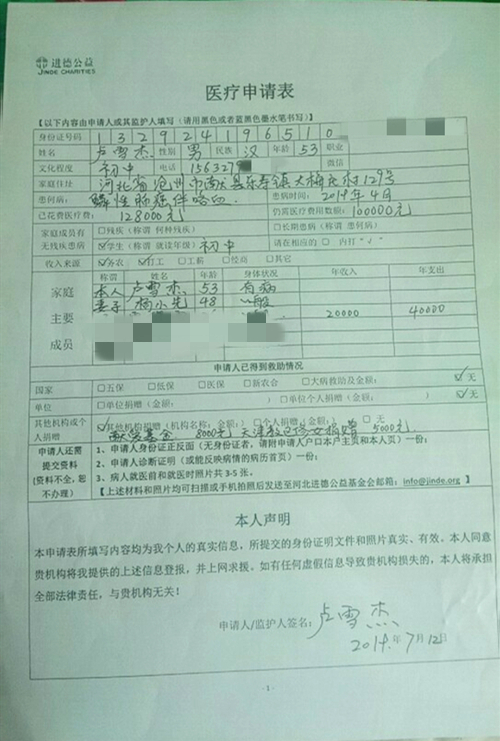 进德公益
JINDE CHARITIES
医疗申请表
【以下内容由申请人或其监护人填写（请用黑色或者蓝黑色墨水笔书写）】
身份证号码 1 3 2 9 2 4 1 9 6 5 1 0
姓名 卢雪杰 性别 男 民族 汉 年龄 53 职业
文化程度 初中 电话 1563279 微信
家庭住址 河北省沧州市献县乐寿镇大梅庄村129号
患何病： 鳞性肺癌伴咯血 患病时间： 2019年4月
已花费医疗费： 128000元 仍需医疗费用数额： 100000元
家庭成员有 □残疾（称谓 何种残疾） □长期患病（称谓 患何病）
无残疾患病 ☑学生（称谓 就读年级） 初中 请在相应的 □ 内打“√”
收入来源 ☑务农 ☑打工 □工薪 □经商 □其它
家庭主要成员 称谓 姓名 年龄 身体状况 年收入 年支出
本人 卢雪杰 53 有病
妻子 杨小先 48 一般
20000 40000
申请人已得到救助情况
国家 □五保 □低保 □医保 □新农合 □大病救助及金额： ☑无
单位 □单位捐赠（金额： ） □单位个人捐赠（金额： ） ☑无
其他机构或个人捐赠 ☑其他机构捐赠（机构名称： 金额： ） □个人捐赠（金额： ） □无
献县基金 8000元 天津教巳修女捐赠 5000元
申请人还需提交资料（资料不全，恕不办理）
1、申请人身份证正反面（无身份证者，请附申请人户口本户主页和本人页）一份；
2、申请人诊断证明（或能反映病情的病历首页）一份；
3、病人就医前和就医时照片共 3-5 张。
【上述材料和照片均可扫描或手机拍照后发送至河北进德公益基金会邮箱：info@jinde.org】
本人声明
本申请表所填写内容均为我个人的真实信息，所提交的身份证明文件和照片真实、有效。本人同意
贵机构将我提供的上述信息登报，并上网求援。如有任何虚假信息导致贵机构损失的，本人将承担
全部法律责任，与贵机构无关！
申请人/监护人签名： 卢雪杰
2019.年7月12日
- 1 -